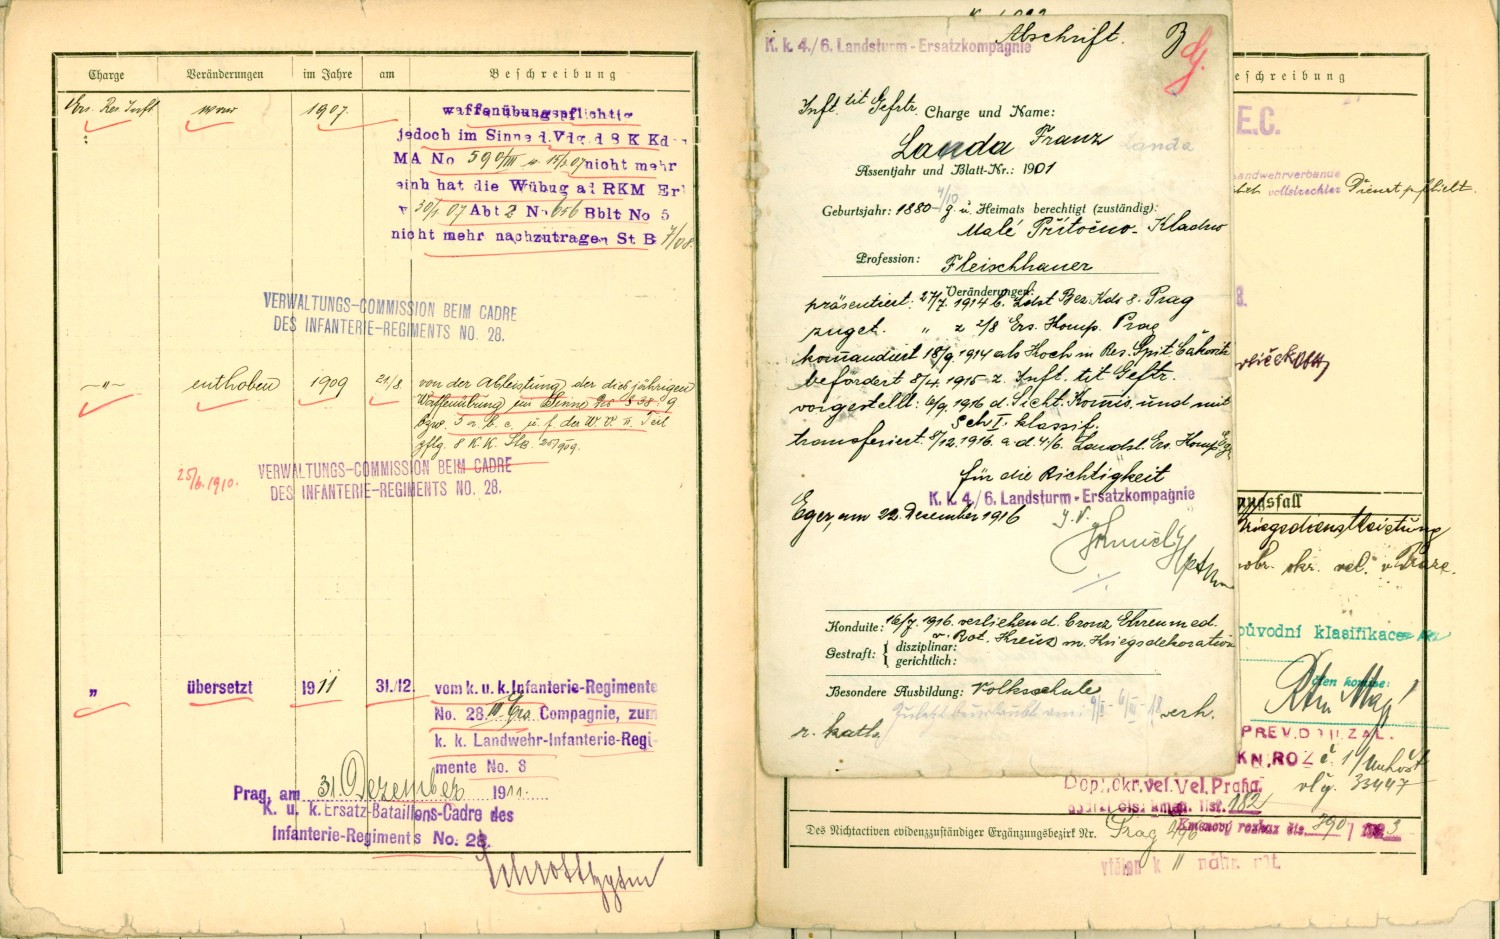 Charge Veränderungen im Jahre am Beschreibung
Ers. Res. Inft wurde 1907 waffenübungspflichtig
jedoch im Sinne d. Vdg. d 8 K Kd
MA No 590/III v. 15/3 07 nicht mehr
einh hat die Wübug al RKM Erl
v 30/1 07 Abt 2 No 606 Bblt No 5
nicht mehr nachzutragen St B 7/08.
VERWALTUNGS-COMMISSION BEIM CADRE
DES INFANTERIE-REGIMENTS NO. 28.
—"— enthoben 1909 21/8. von der Ableistung der diesjährigen
Waffenübung im Sinne des § 38:9
bzw. 5 a. b. c. u. f. der W. V. II. Teil
VERWALTUNGS-COMMISSION BEIM CADRE
25/6. 1910.
DES INFANTERIE-REGIMENTS NO. 28.
" übersetzt 1911 31./12. vom k. u. k. Infanterie-Regimente
No. 28. Compagnie, zum
k. k. Landwehr-Infanterie-Regi-
mente No. 8
Prag, am 31. Dezember 1911.
K. u. k. Ersatz-Bataillons-Cadre des
Infanterie-Regiments No. 28.
Abschrift.
K. k. 4./6. Landsturm-Ersatzkompagnie
Inft tit Gefrtr. Charge und Name:
Landa Franz
Assentjahr und Blatt-Nr.: 1901
Geburtsjahr: 1880 4/10 g. u. Heimats berechtigt (zuständig):
Malé Přítočno - Kladno
Profession: Fleischhauer
Veränderungen:
präsentiert: 27/7. 1914 b. Ldst Bez. Kdo 8. Prag
zuget. " z 2/8 Ers. Komp. Prag
komandiert 18/9. 1914 als Koch in Res. Spit. Cakovic
befördert 8/4. 1915 z. Inft. tit Gefrtr.
vorgestellt: 6/9. 1916 d. Sicht. Komis. und mit
Sch I. klassif.
transferiert: 8/12. 1916 a. d. 4/6. Landst. Ers. Komp. Eger
für die Richtigkeit
K. k. 4./6. Landsturm-Ersatzkompagnie
Eger, am 22. Dezember 1916
J. V.
Konduite: 16/7. 1916. verliehen d. bronz Ehrenmed.
v. Rot. Kreuz m. Kriegsdekoration
Gestraft: disziplinar:
gerichtlich:
Besondere Ausbildung: Volksschule
Zuletzt beurlaubt am: 9/II - 6/III - 18 verh.
r. kath.
Beschreibung
E.C.
Landa
Landwehrverbande
Dienstpflicht.
ungsfall
Kriegsdienstleistung
dobr. okr. vel. v Praze.
původní klasifikace
PREV. DO U. ZAL.
KN. ROZ č. 1/Unhošť
Dopl. okr. vel. Vel. Praha. vl. č. 33447
list. 182
Des Nichtactiven evidenzzuständiger Ergänzungsbezirk Nr. Prag
Kmenový rozkaz čís. 290/1923
vtělen k 11